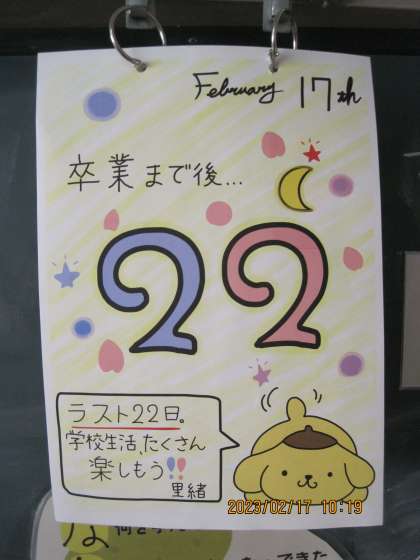 February 17th
卒業まで後...
22
ラスト22日。
学校生活、たくさん
楽しもう!!
里緒
2023/02/17 10:19